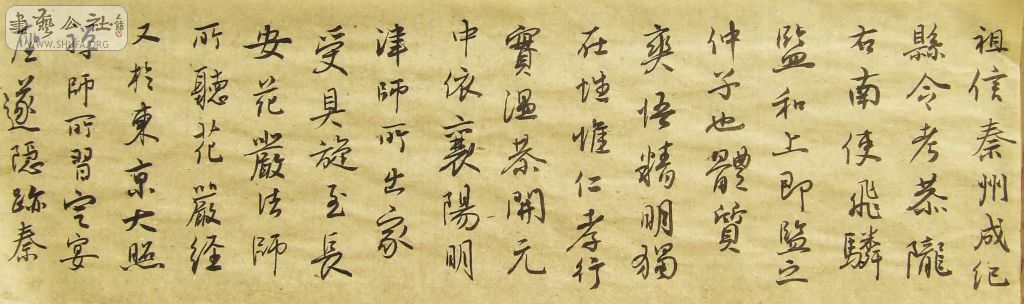 祖信秦州成纪
縣令考恭隴
右南使飛驎
監和上即監之
仲子也體質
爽悟精明獨
在性惟仁孝行
實溫恭開元
中依襄陽明
津師所出家
受具旋至長
安花嚴法師
所聽花嚴经
又於東京大照
師所習定宴
座遂隱跡秦
書藝公社
WWW.SHUFA.ORG